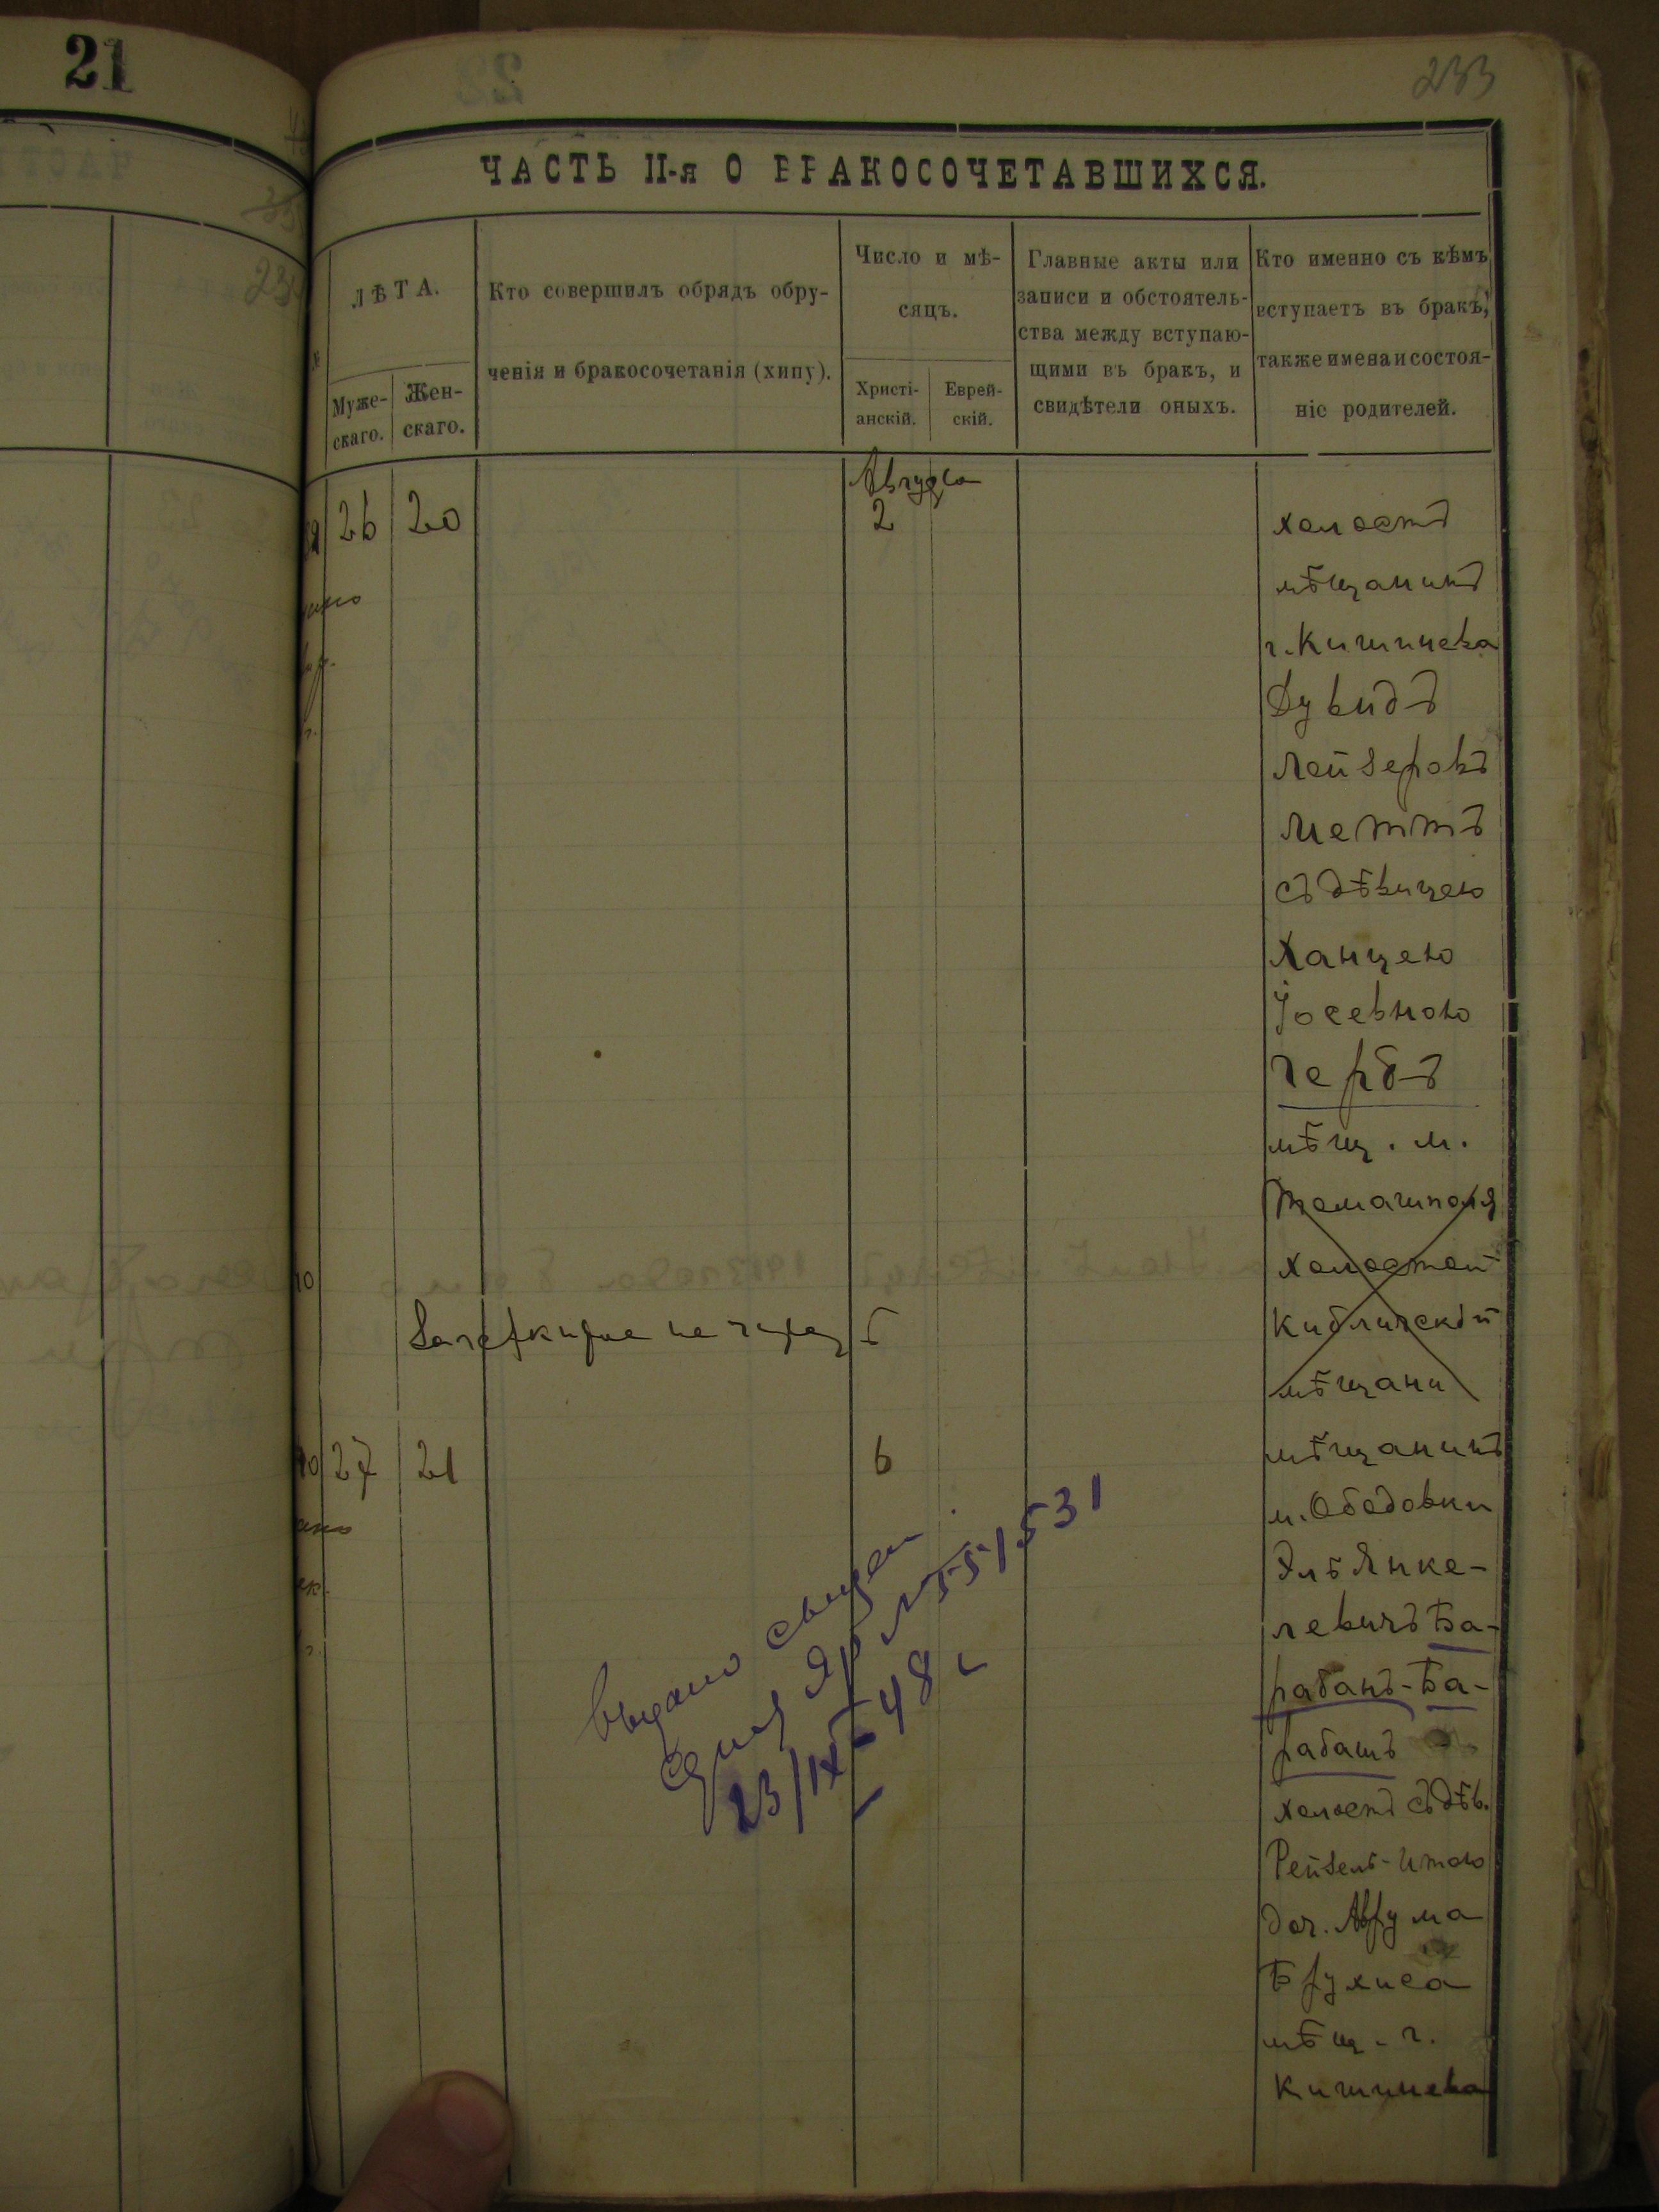 21
233
ЧАСТЬ II-я О БРАКОСОЧЕТАВШИХСЯ.
ЛѢТА.
Муже-
скаго.
Жен-
скаго.
Кто совершилъ обрядъ обру-
ченія и бракосочетанія (хипу).
Число и мѣ-
сяцъ.
Христі-
анскій.
Еврей-
скій.
Главные акты или
записи и обстоятель-
ства между вступаю-
щими въ бракъ, и
свидѣтели оныхъ.
Кто именно съ кѣмъ
вступаетъ въ бракъ,
также имена и состоя-
ніе родителей.
Августа
26 20 2
холостъ
мѣщанинъ
г. Кишинева
Дувидъ
Лейзеровъ
Меттъ
съ дѣвицею
Ханцею
Іосевною
Гербъ
мѣщ. м.
Томашполя
холостой
Кибличскій
мѣщани
27 21 6
мѣщанинъ
м. Ободовки
Эль Янке-
левичъ Ба-
рабанъ-Ба-
рабашъ
холостъ съ дѣв.
Рейзель-Итою
доч. Аврума
Брухиса
мѣщ. г.
Кишинева
Выдано
ЯР № 551531
23/IX-48 г